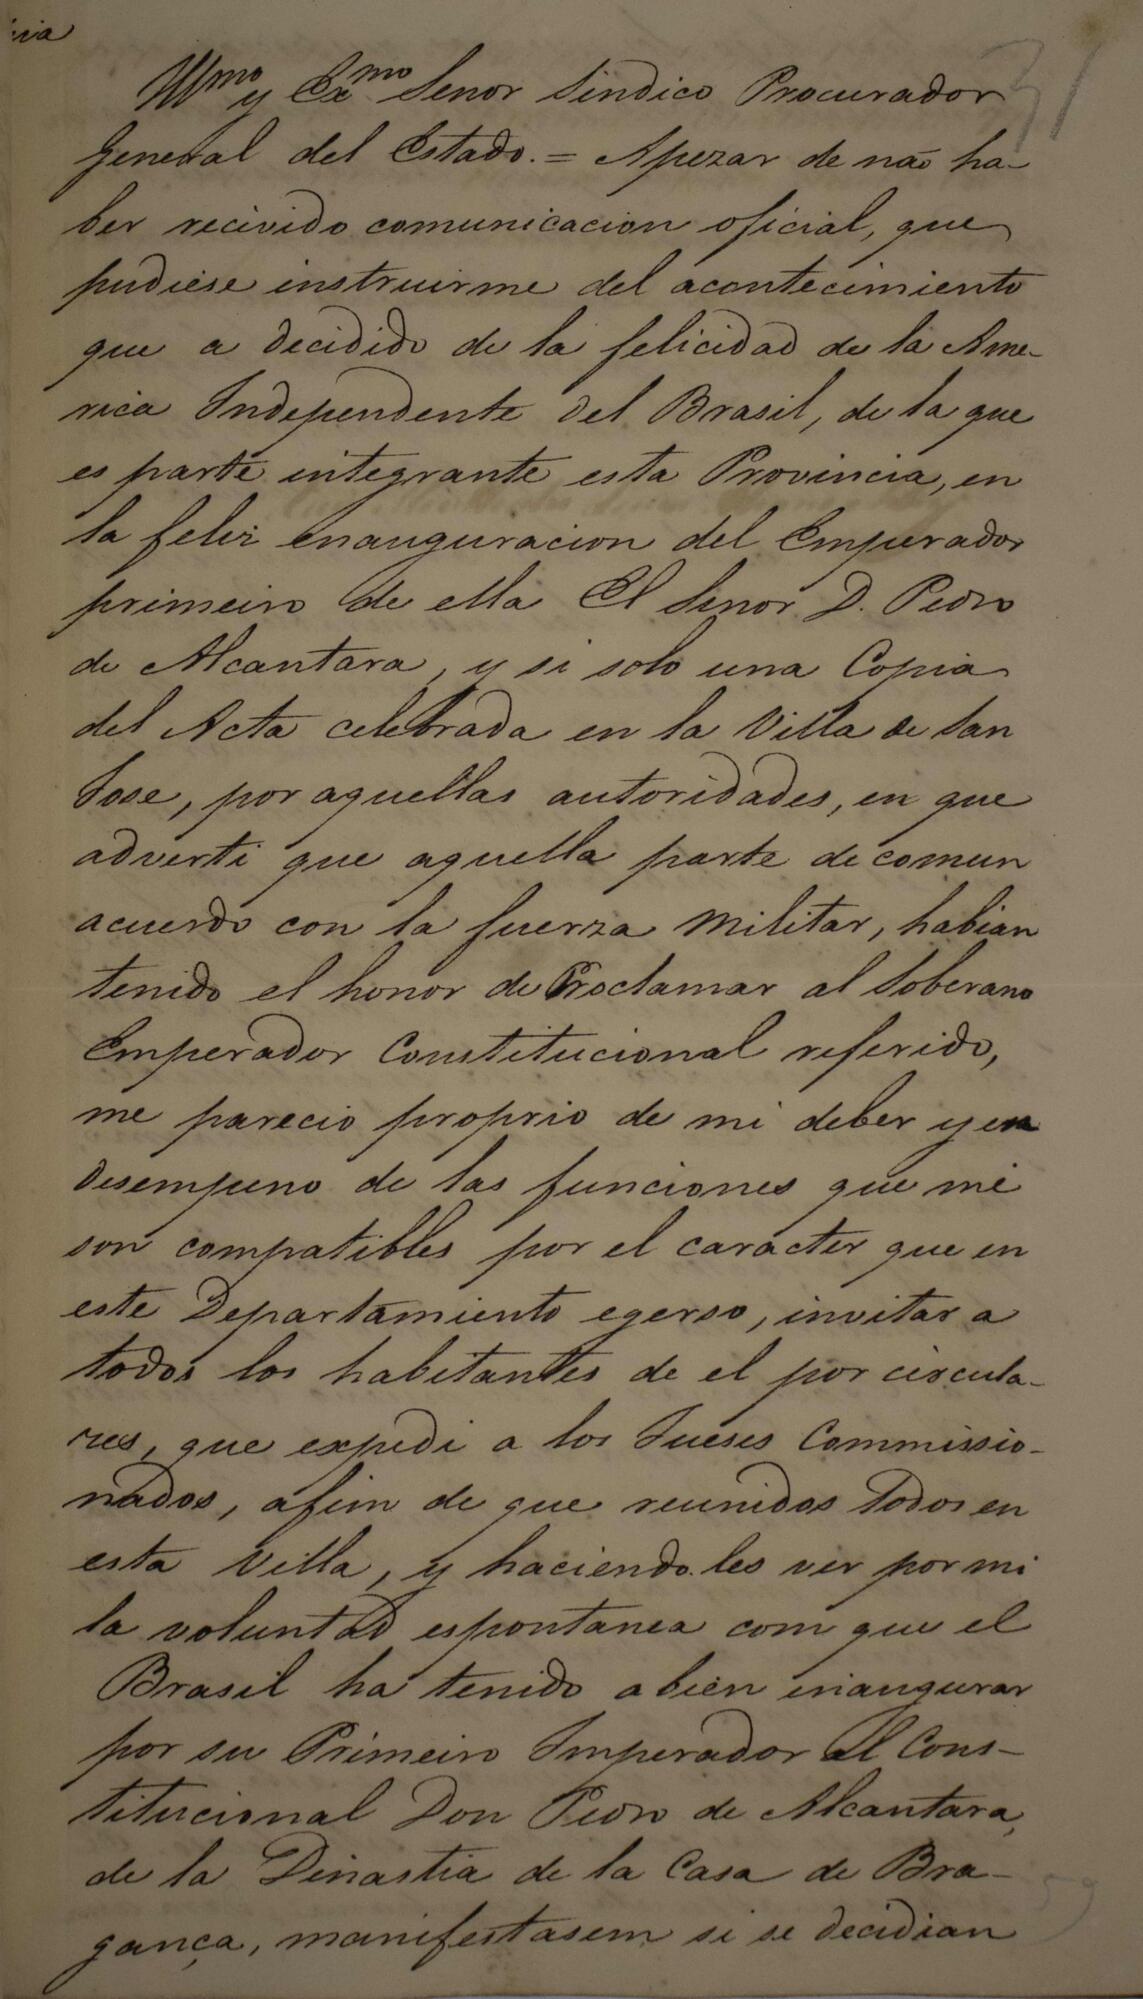 cia
31
Illmo y Exmo Senor Sindico Procurador
General del Estado. = Apezar de não ha-
ber recivido comunicacion oficial, que
pudiese instruirme del acontecimiento
que a decidido de la felicidad de la Ame-
rica Independente del Brasil, de la que
es parte integrante esta Provincia, en
la feliz enauguracion del Emperador
primeiro de ella El Senor D. Pedro
de Alcantara, y si solo una Copia
del Acta celebrada en la Villa de San
Jose, por aquellas autoridades, en que
adverti que aquella parte de comun
acuerdo con la fuerza militar, habian
tenido el honor de Proclamar al Soberano
Emperador Constitucional referido,
me parecio proprio de mi deber y en
desempeno de las funciones que me
son compatibles por el caracter que en
este Departamiento egerso, invitar a
todos los habitantes de el por circula-
res, que expedi a los Jueses Commissio-
nados, afim de que reunidos todos en
esta Villa, y haciendo les ver por mi
la voluntad espontanea com que el
Brasil ha tenido a bien inaugurar
por su Primeiro Imperador al Cons-
titucional Don Pedro de Alcantara,
de la Dinastia de la Casa de Bra-
gança, manifestasem si se decidian
59